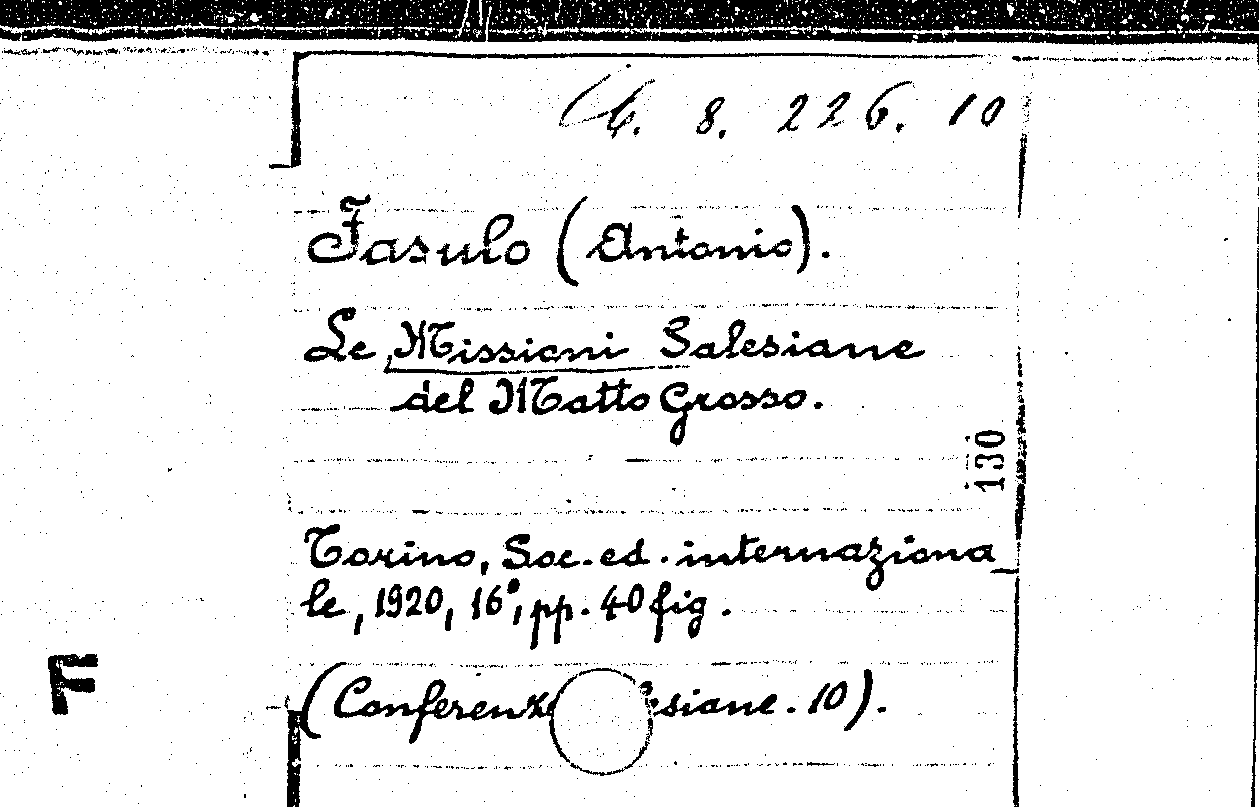 8. 226. 10
Fasulo (Antonio).
Le Missioni Salesiane
del Matto Grosso.
130
Torino, Soc. ed. internaziona_
le, 1920, 16°, pp. 40 fig.
F
(Conferenze esiane. 10).